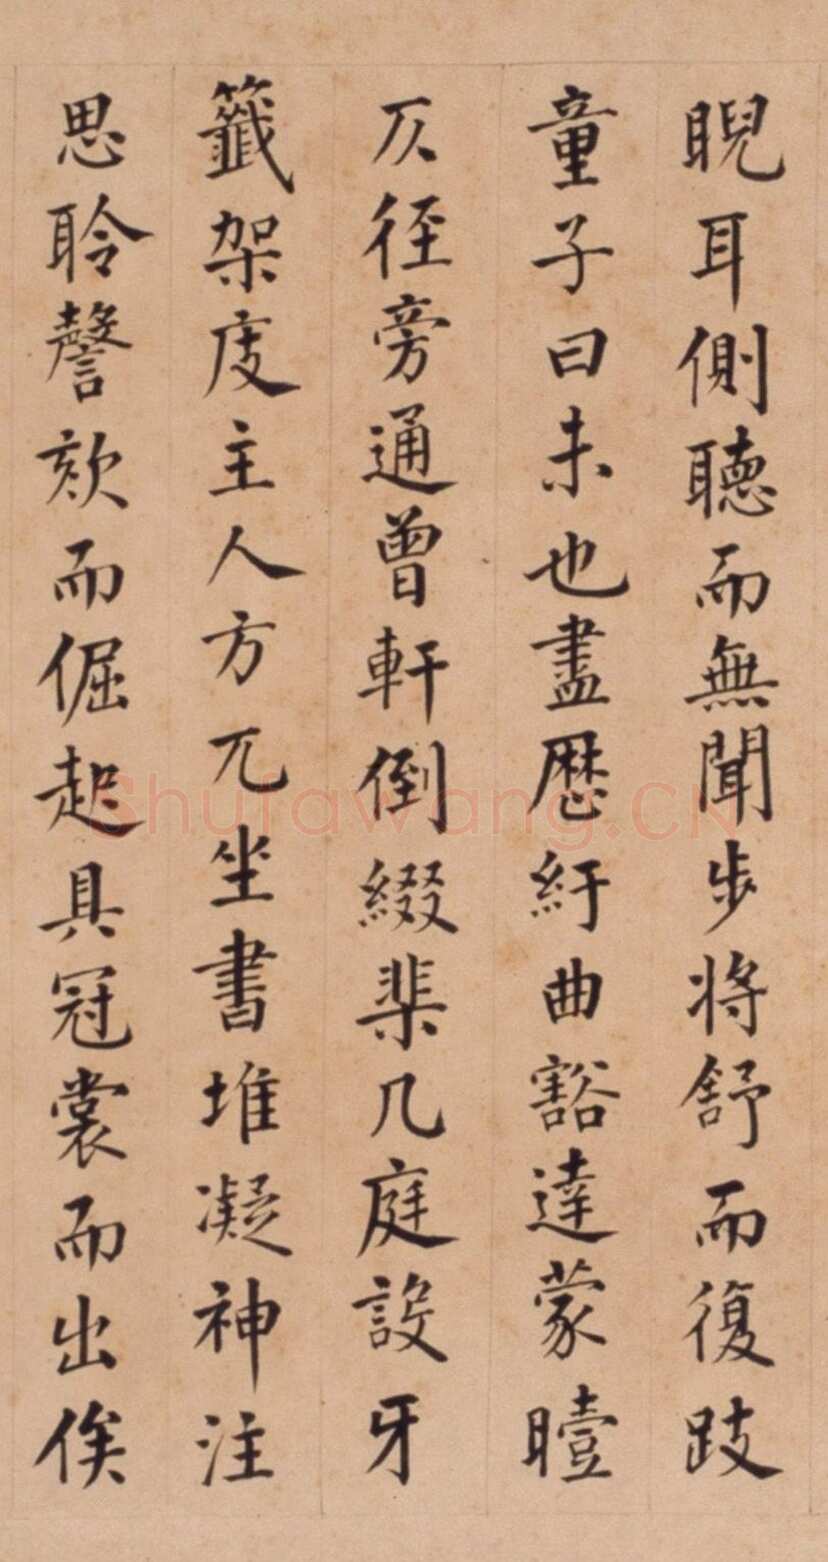 睨耳側聴而無聞步将舒而復跂
童子曰未也盡歷紆曲豁達蒙曀
仄徑旁通曾軒倒綴棐几庭設牙
籤架庋主人方兀坐書堆凝神注
思聆謦欬而倔起具冠裳而出俟